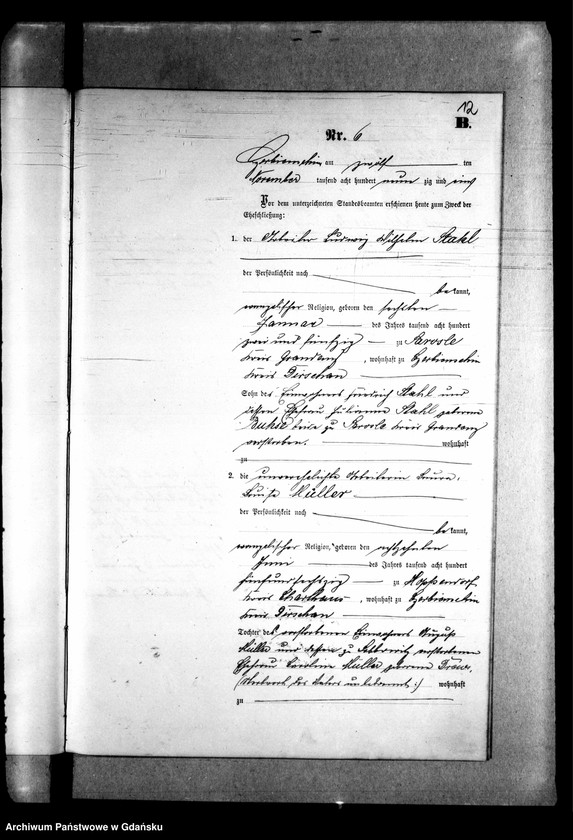 12
B.
Nr. 6
am zwölf ten
November tausend acht hundert neun zig und eins
Vor dem unterzeichneten Standesbeamten erschienen heute zum Zweck der
Eheschließung:
1. der Arbeiter Ludwig Wilhelm Stahl
der Persönlichkeit nach
be kannt,
evangelischer Religion, geboren den sechsten
Januar des Jahres tausend acht hundert
zwei und fünfzig zu
Kreis Graudenz, wohnhaft zu
Kreis Dirschau
Sohn des Einwohners Friedrich Stahl und
dessen Ehefrau Stahl geborene
beide zu Kreis Graudenz
verstorben. wohnhaft
zu
2. die unverehelichte Arbeiterin
Luise Müller
der Persönlichkeit nach
be kannt,
evangelischer Religion, geboren den achtzehnten
Juni des Jahres tausend acht hundert
fünfundsechszig zu Hoppendorf
Kreis Carthaus, wohnhaft zu
Kreis Dirschau
Tochter des verstorbenen Einwohners August
Müller und dessen zu verstorbenen
Ehefrau Caroline Müller geborene
(Sterbeort des Vaters unbekannt:) wohnhaft
zu
Archiwum Państwowe w Gdańsku